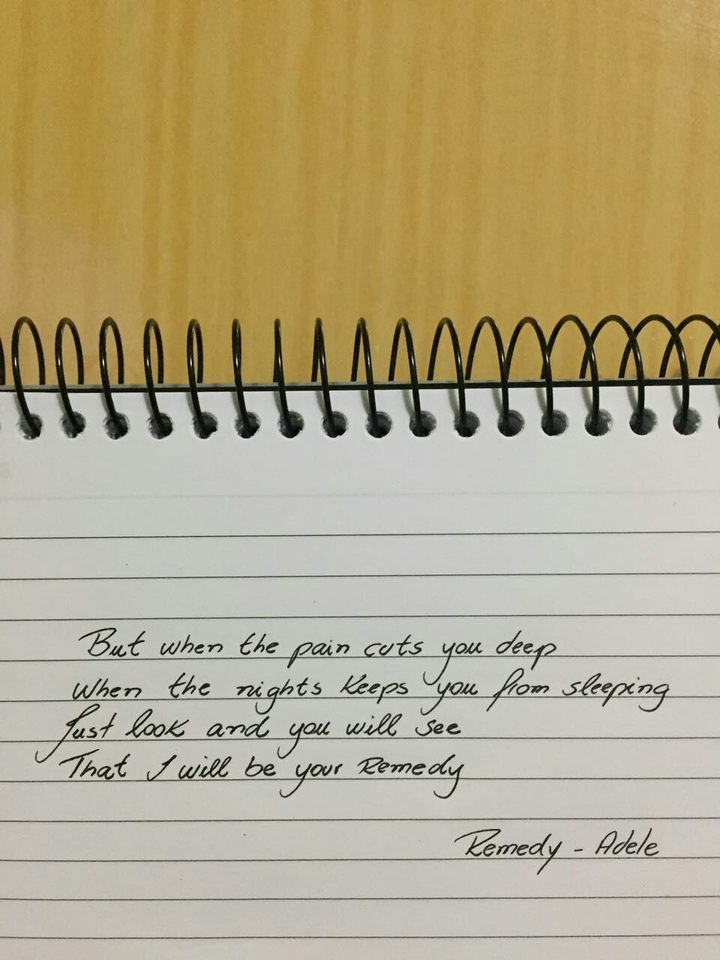 But when the pain cuts you deep
When the nights keeps you from sleeping
Just look and you will see
That I will be your Remedy
Remedy - Adele